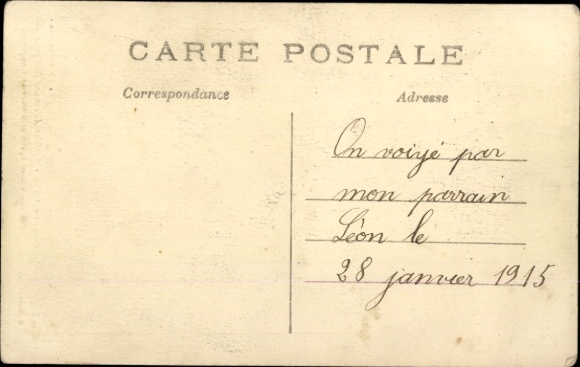 CARTE POSTALE
Correspondance
Adresse
On voiyé par
mon parrain
Léon le
28 janvier 1915